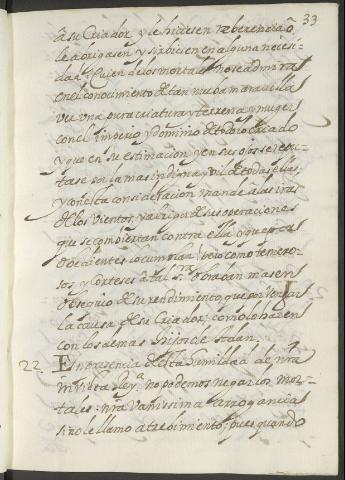 33
a su Criador y le hiciesen reberencia ô
le abrigasen y sirbiesen en alguna necesi-
dad. Quien de los mortales no se admira
en el conocimiento de tan nueba marauilla
ver una pura criatura y terrena y muger
con el imperio y dominio de todo lo criado
y que en su estimacion y en sus ojos se repu-
tase por la mas indigna y vil de todas ellas;
y con esta consideracion mande a las iras
de los vientos, y al rigor de sus operaciones
que se combiertan contra ella y que por
obedientes lo cumplan! Pero como temero-
sos y corteses a tal Sra. obraban mas en
obsequio de su rendimiento, que por vengar
la causa de su Criador; como lo hacen
con los demas hijos de Adan.
22 En presencia de esta humildad de nra
invicta Rey. no podemos negar los mor-
tales nra vanissima arrogancia
si no le llamo atrebimiento; pues quando